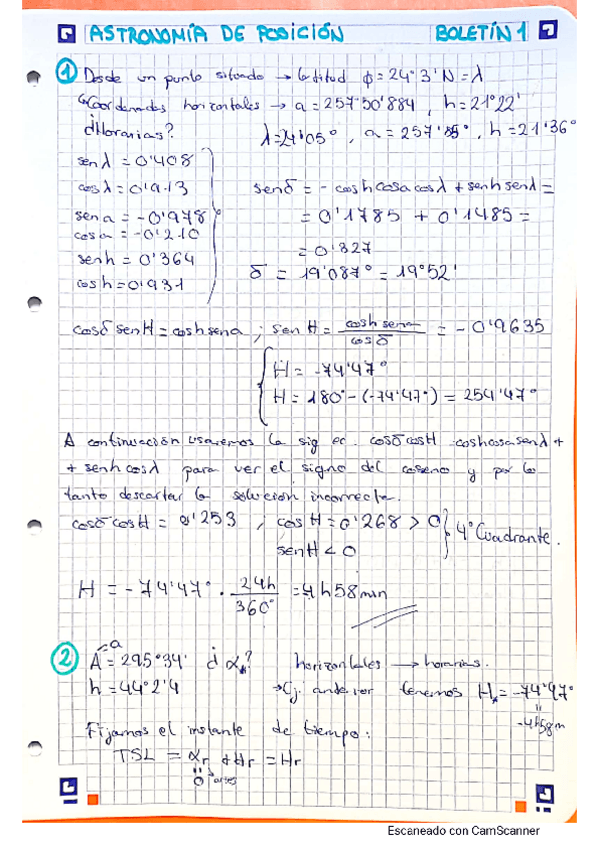 ASTRONOMÍA DE POSICIÓN BOLETÍN 1
① Desde un punto situado → latitud ϕ = 24°3' N = λ
↳ Coordenadas horizontales → a = 257°50'884 , h = 21°22'
¿Horarias? λ = 24'05° , a = 257'85° , h = 21'36°
sen λ = 0'408
cos λ = 0'913
sen a = -0'978
cos a = -0'210
sen h = 0'364
cos h = 0'931
sen δ = - cos h cos a cos λ + sen h sen λ =
= 0'1785 + 0'1485 =
= 0'327
δ = 19'087° = 19°52'
cos δ sen H = cos h sen a ; sen H = cos h sen a / cos δ = -0'9635
H = -74'47°
H = 180° - (-74'47°) = 254'47°
A continuación usaremos la sig ec. cos δ cos H cos h cos a sen λ +
+ sen h cos λ para ver el signo del coseno y por lo
tanto descartar la solución incorrecta.
cos δ cos H = 0'253 ; cos H = 0'268 > 0 } 4° Cuadrante.
sen H < 0
H = -74'47° · 24h / 360° = 4h 58min
② A = 295°34' ¿ α*? horizontales → horarias.
a
h = 44°2'4 → Ej. anterior tenemos H* = -74'47°
= -4h58m
Fijamos el instante de tiempo:
TSL = αr + Hr = Hr
0
Escaneado con CamScanner